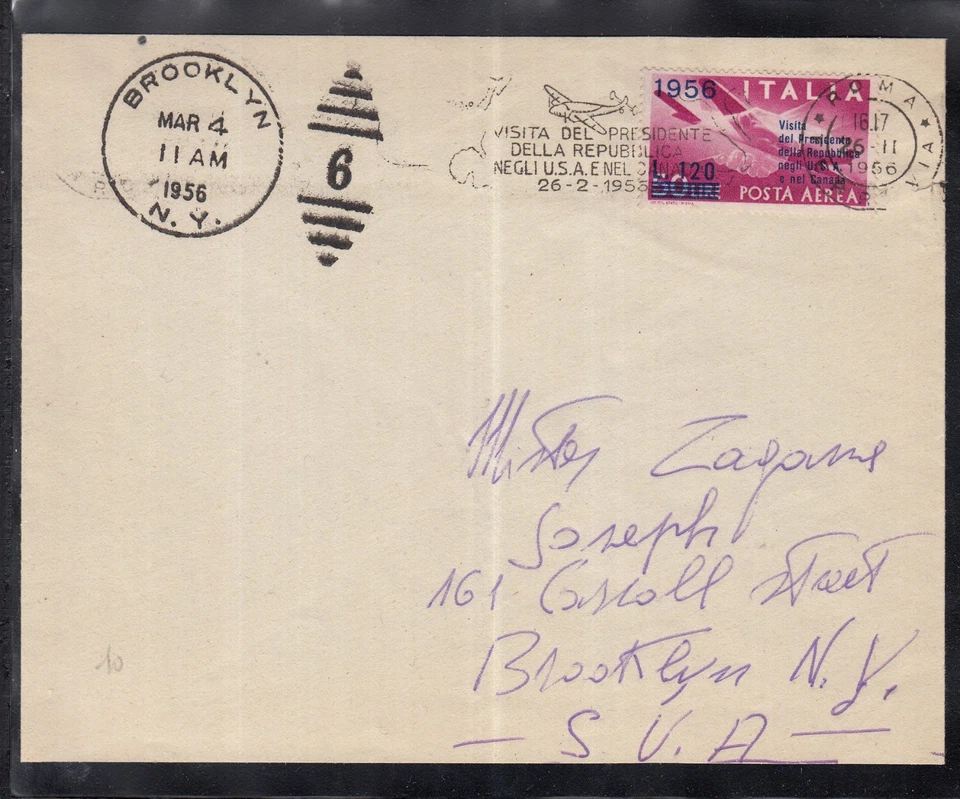 BROOKLYN
MAR 4
11 AM
1956
N. Y.
6
VISITA DEL PRESIDENTE
DELLA REPUBBLICA
NEGLI U.S.A. E NEL CANADA
26-2-1956
1956 ITALIA
Visita
del Presidente
della Repubblica
negli U.S.A.
e nel Canada
L. 120
50 LIRE
POSTA AEREA
ROMA
16.17
26-II
1956
Mister Zagame
Joseph
161 Carroll street
Brooklyn N. Y.
- S U. A -
10